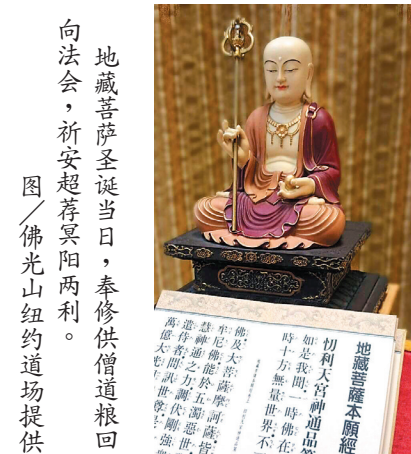 地藏菩萨圣诞当日，奉修供僧道粮回
向法会，祈安超荐冥阳两利。
图／佛光山纽约道场提供
地藏菩薩本願經
忉利天宮神通品第
如是我聞一時佛在
時十方無量世界不
佛及大菩薩摩訶薩皆
牟尼佛能於五濁惡世
慧神通之力調伏剛強
遣侍者問訊世尊
萬億大光